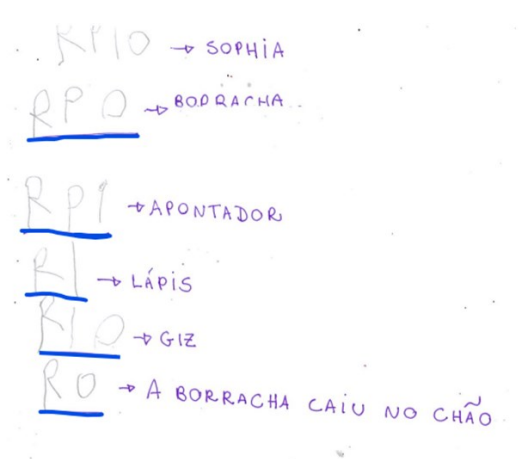 RPIO → SOPHIA
RPO → BORRACHA
RPI → APONTADOR
RI → LÁPIS
RIO → GIZ
RO → A BORRACHA CAIU NO CHÃO